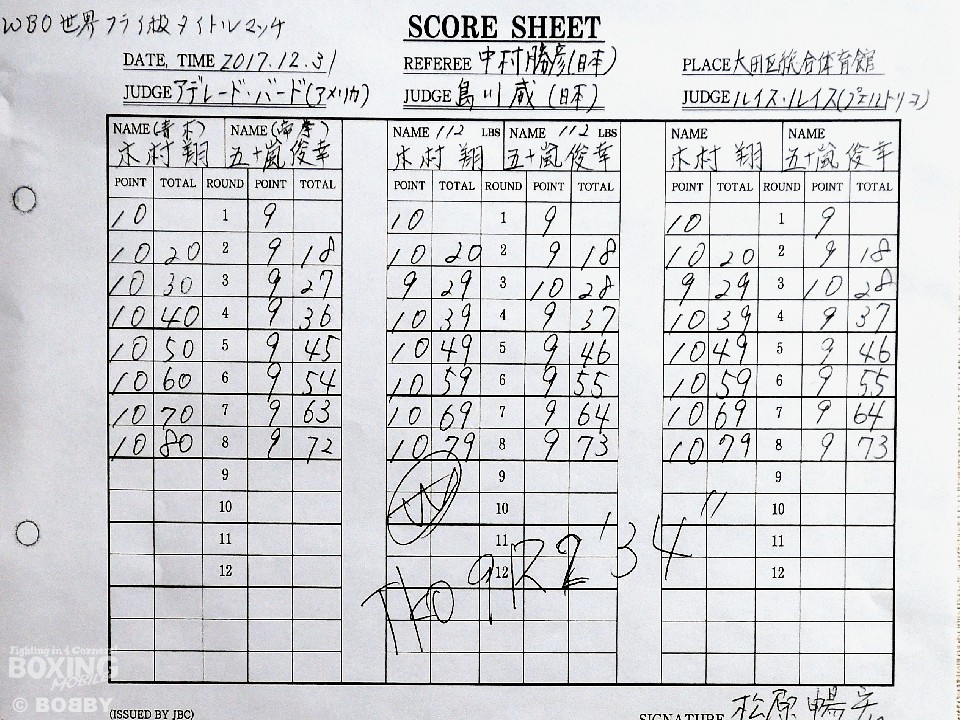 WBO世界フライ級タイトルマッチ
SCORE SHEET
DATE, TIME 2017.12.31 REFEREE 中村勝彦(日本) PLACE 大田区総合体育館
JUDGE アデレード・バード(アメリカ) JUDGE 島川威(日本) JUDGE ルイス・ルイス(プエルトリコ)
NAME (青木) NAME (帝拳) NAME 112 LBS NAME 112 LBS NAME NAME
木村翔 五十嵐俊幸 木村翔 五十嵐俊幸 木村翔 五十嵐俊幸
POINT TOTAL ROUND POINT TOTAL POINT TOTAL ROUND POINT TOTAL POINT TOTAL ROUND POINT TOTAL
10 1 9 10 1 9 10 1 9
10 20 2 9 18 10 20 2 9 18 10 20 2 9 18
10 30 3 9 27 9 29 3 10 28 9 29 3 10 28
10 40 4 9 36 10 39 4 9 37 10 39 4 9 37
10 50 5 9 45 10 49 5 9 46 10 49 5 9 46
10 60 6 9 54 10 59 6 9 55 10 59 6 9 55
10 70 7 9 63 10 69 7 9 64 10 69 7 9 64
10 80 8 9 72 10 79 8 9 73 10 79 8 9 73
9 9 9
10 W 10 10
11 11 11
12 12 12
TKO 9R 2'34"
Fighting in 4 Corners!
BOXING
MOBILE
© BOBBY
(ISSUED BY JBC) SIGNATURE 松原暢宏